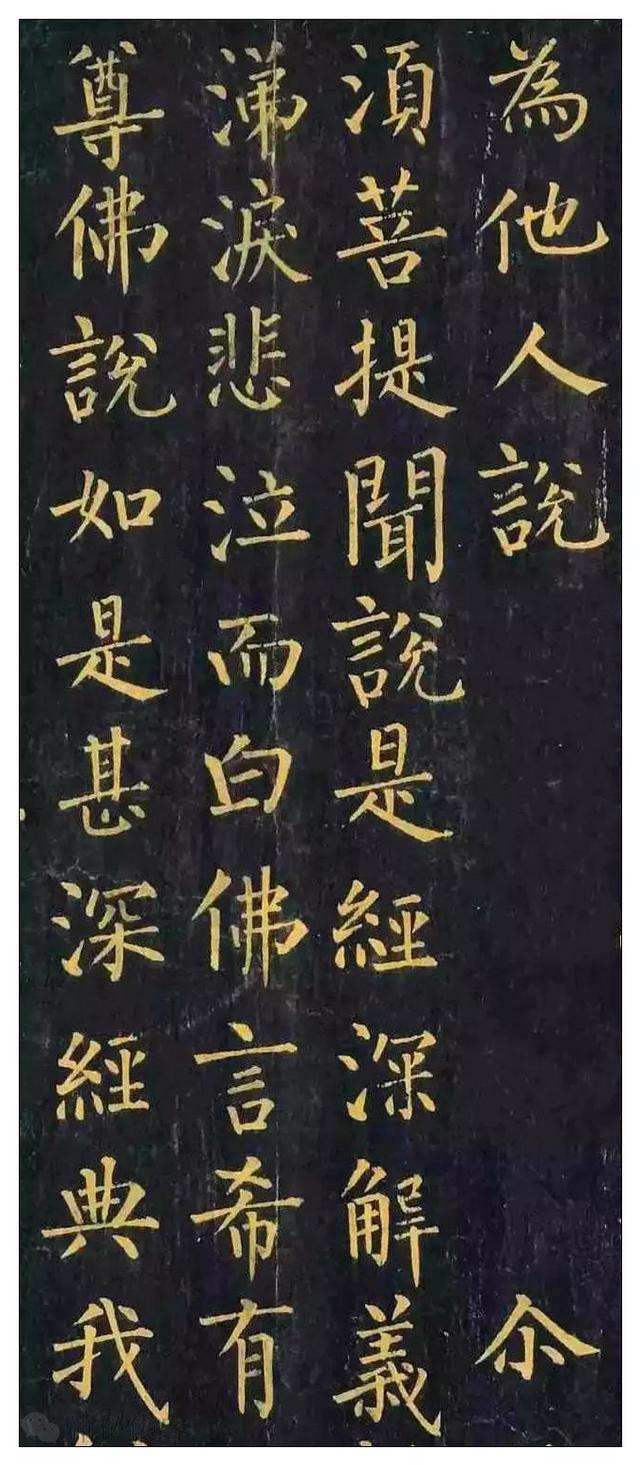 為他人說 尒
湏菩提聞說是經深解義
涕淚悲泣而白佛言希有
尊佛說如是甚深經典我